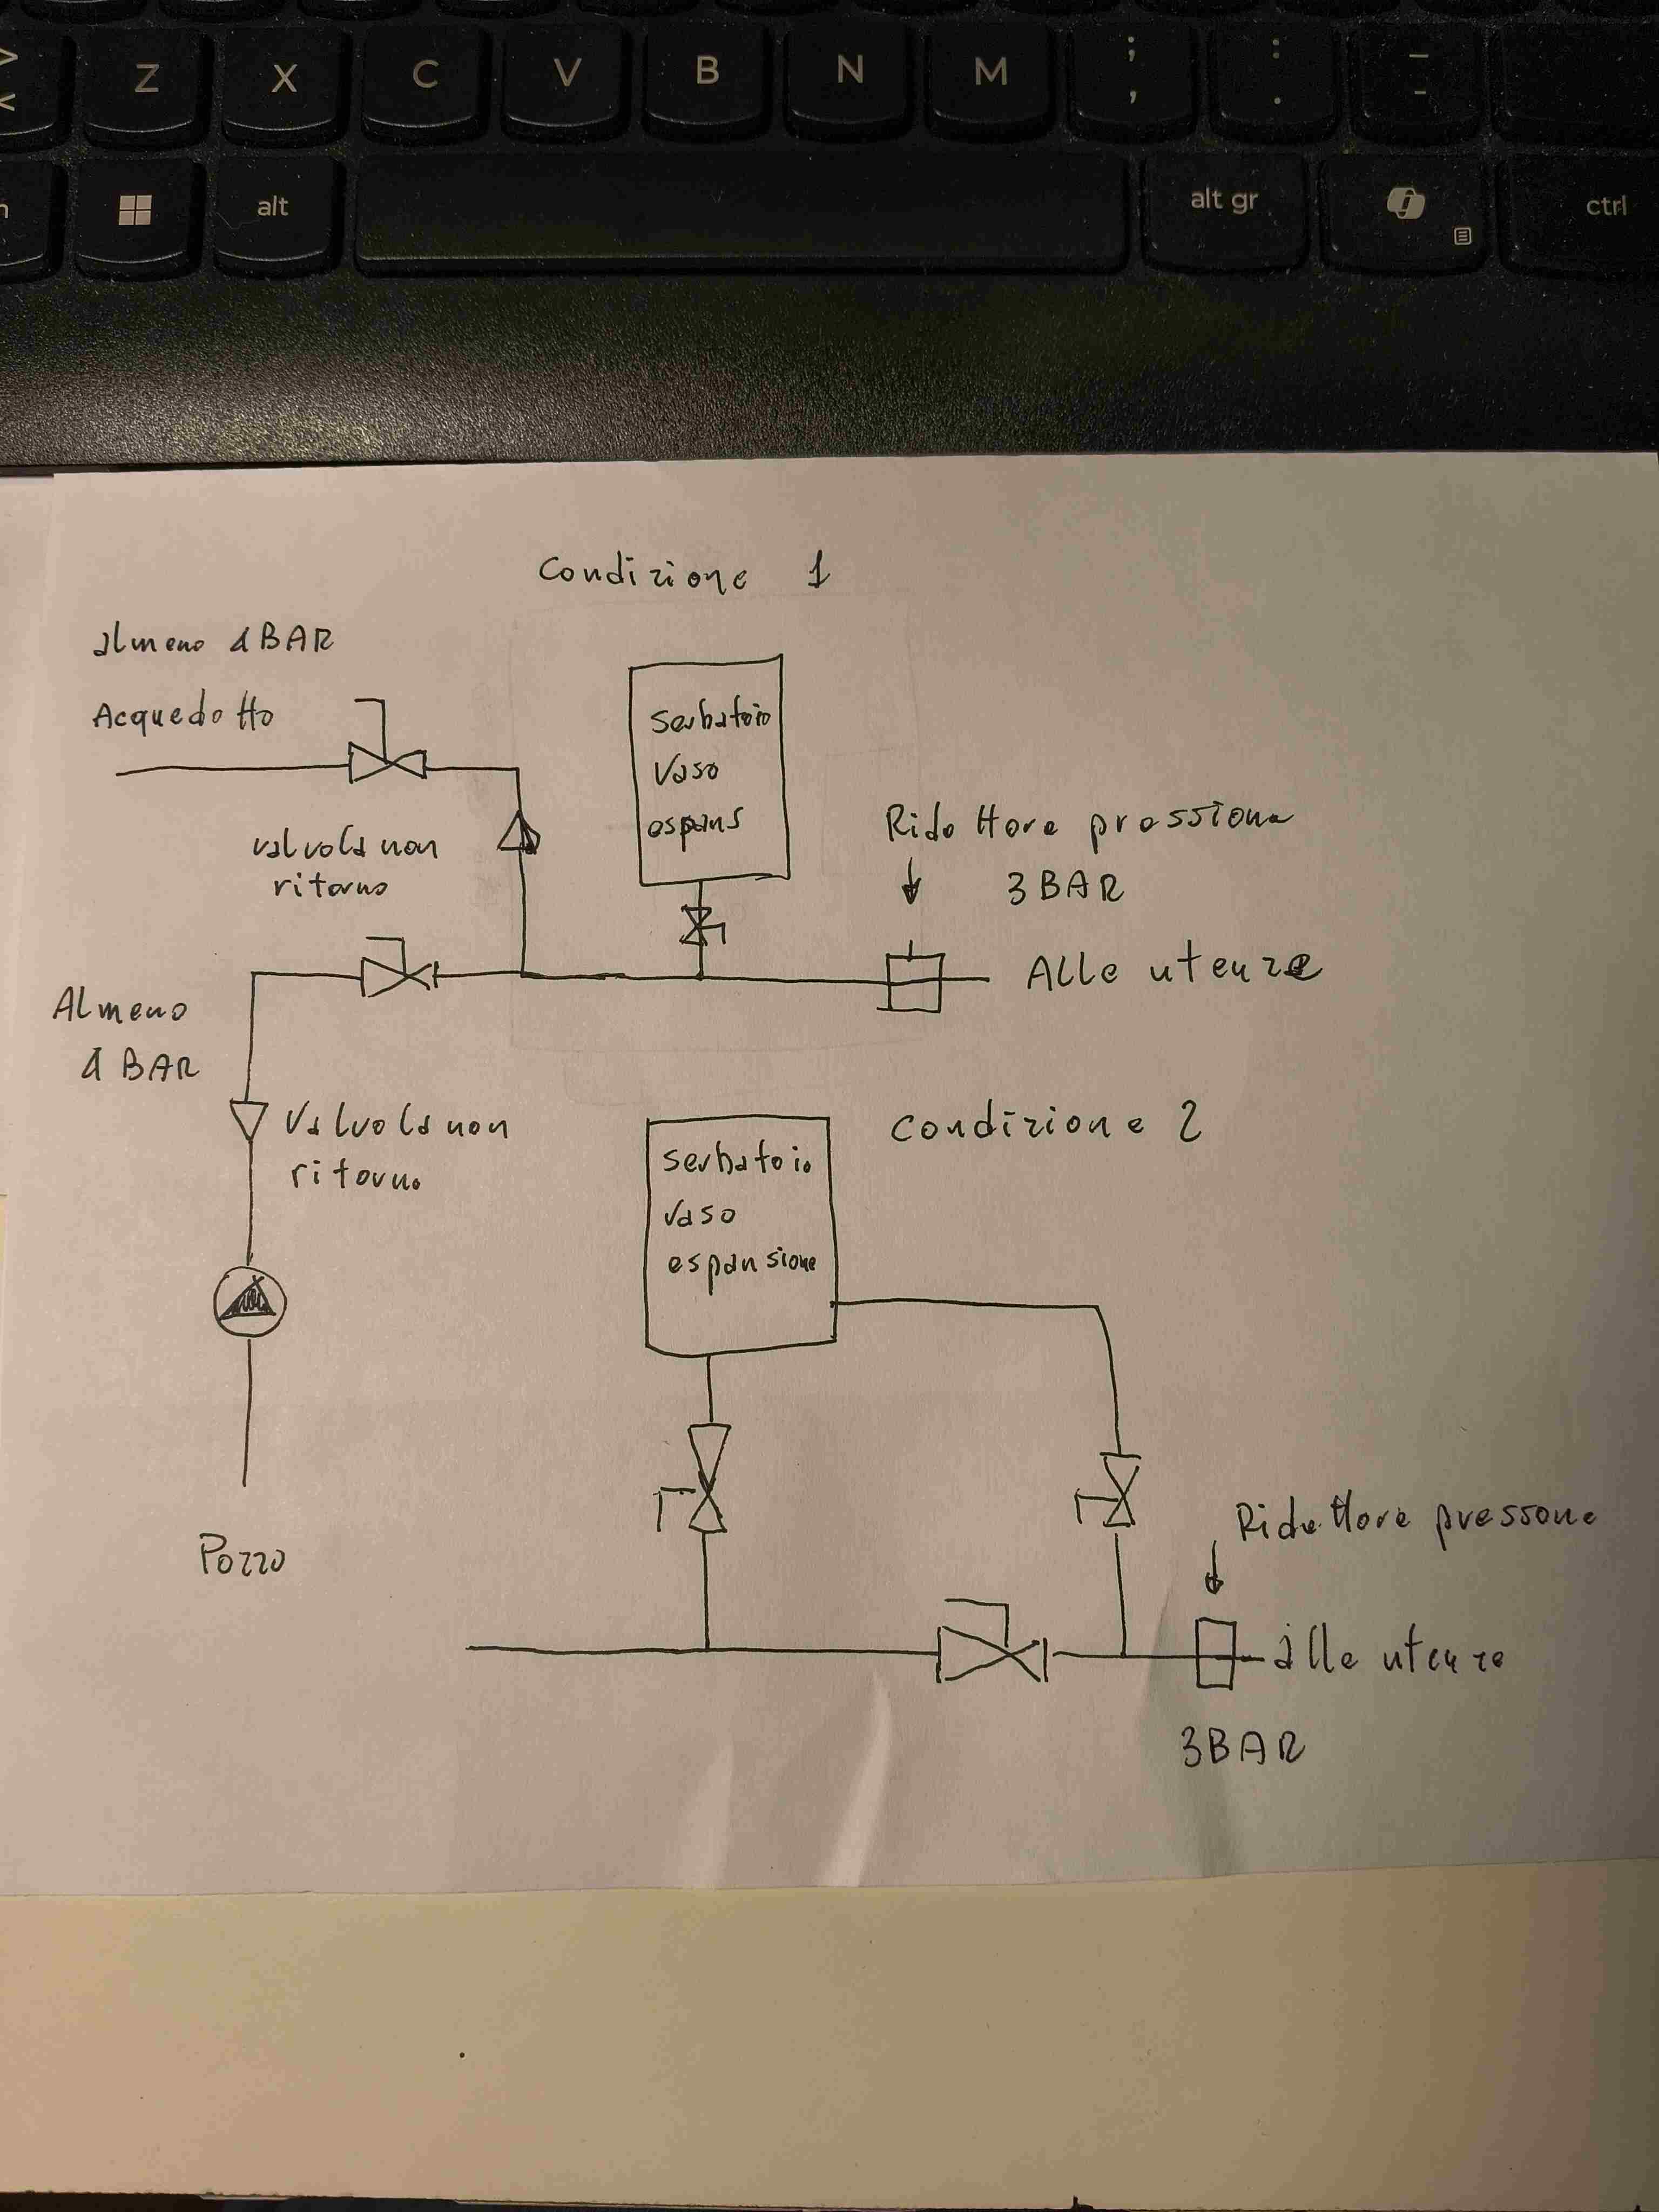 Z X C V B N M ; , : . _ -
alt
alt gr
ctrl
Condizione 1
almeno 4 BAR
Acquedotto
serbatoio
vaso
espans
valvola non
ritorno
Ridottore pressione
3 BAR
Alle utenze
Almeno
4 BAR
Valvola non
ritorno
Pozzo
Condizione 2
serbatoio
vaso
espansione
Riduttore pressone
alle utenze
3 BAR